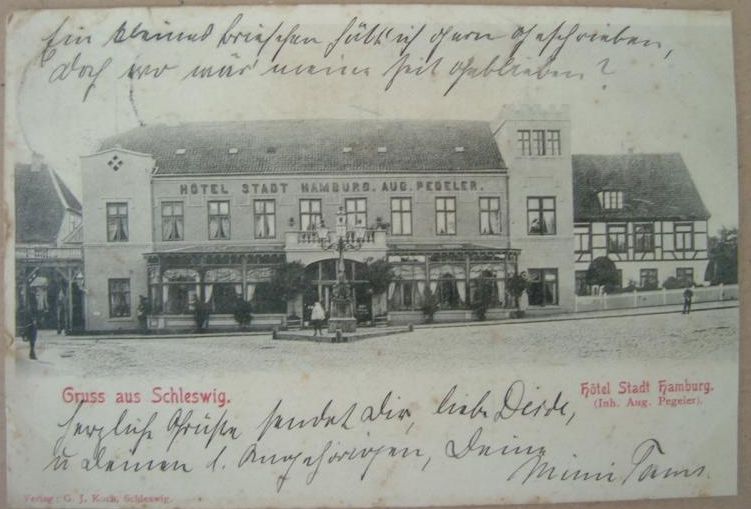 Ein kleines Briefchen hätt' ich gern geschrieben,
Doch wo wär' meine Zeit geblieben?
HÔTEL STADT HAMBURG. AUG. PEGELER.
Gruss aus Schleswig.
Hôtel Stadt Hamburg.
(Inh. Aug. Pegeler).
herzliche Grüße sendet Dir, liebe
u Deinen l. Angehörigen, Deine
Mimi
Verlag: G. J. Koch, Schleswig.